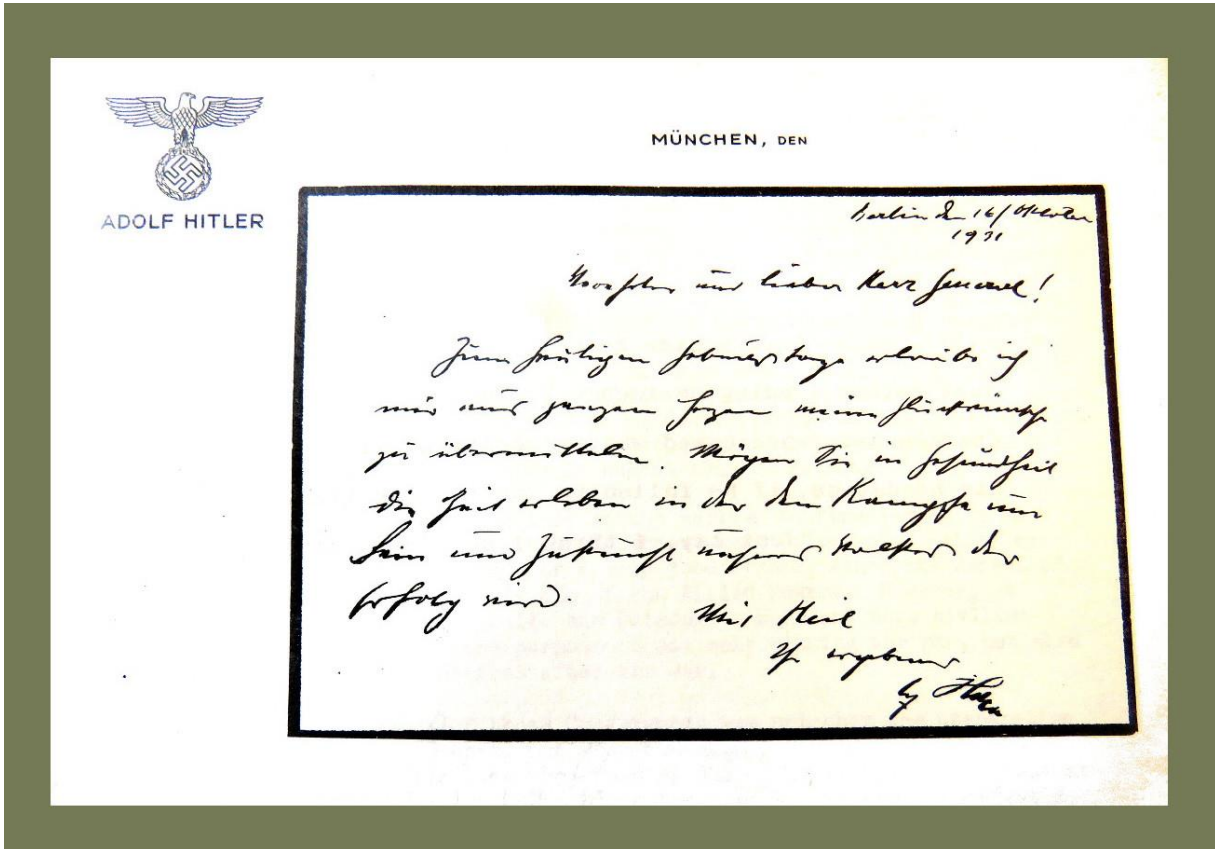 MÜNCHEN, DEN
ADOLF HITLER
Berlin den 16/Oktober
1931
Verehrter und lieber Herr General!
Zum heutigen Geburtstage erlaube ich
mir aus ganzem Herzen meine Glückwünsche
zu übermitteln. Mögen Sie in Gesundheit
die Zeit erleben in der dem Kampfe um
Sein und Zukunft unseres Volkes der
Erfolg wird.
Mit Heil
Ihr ergebener